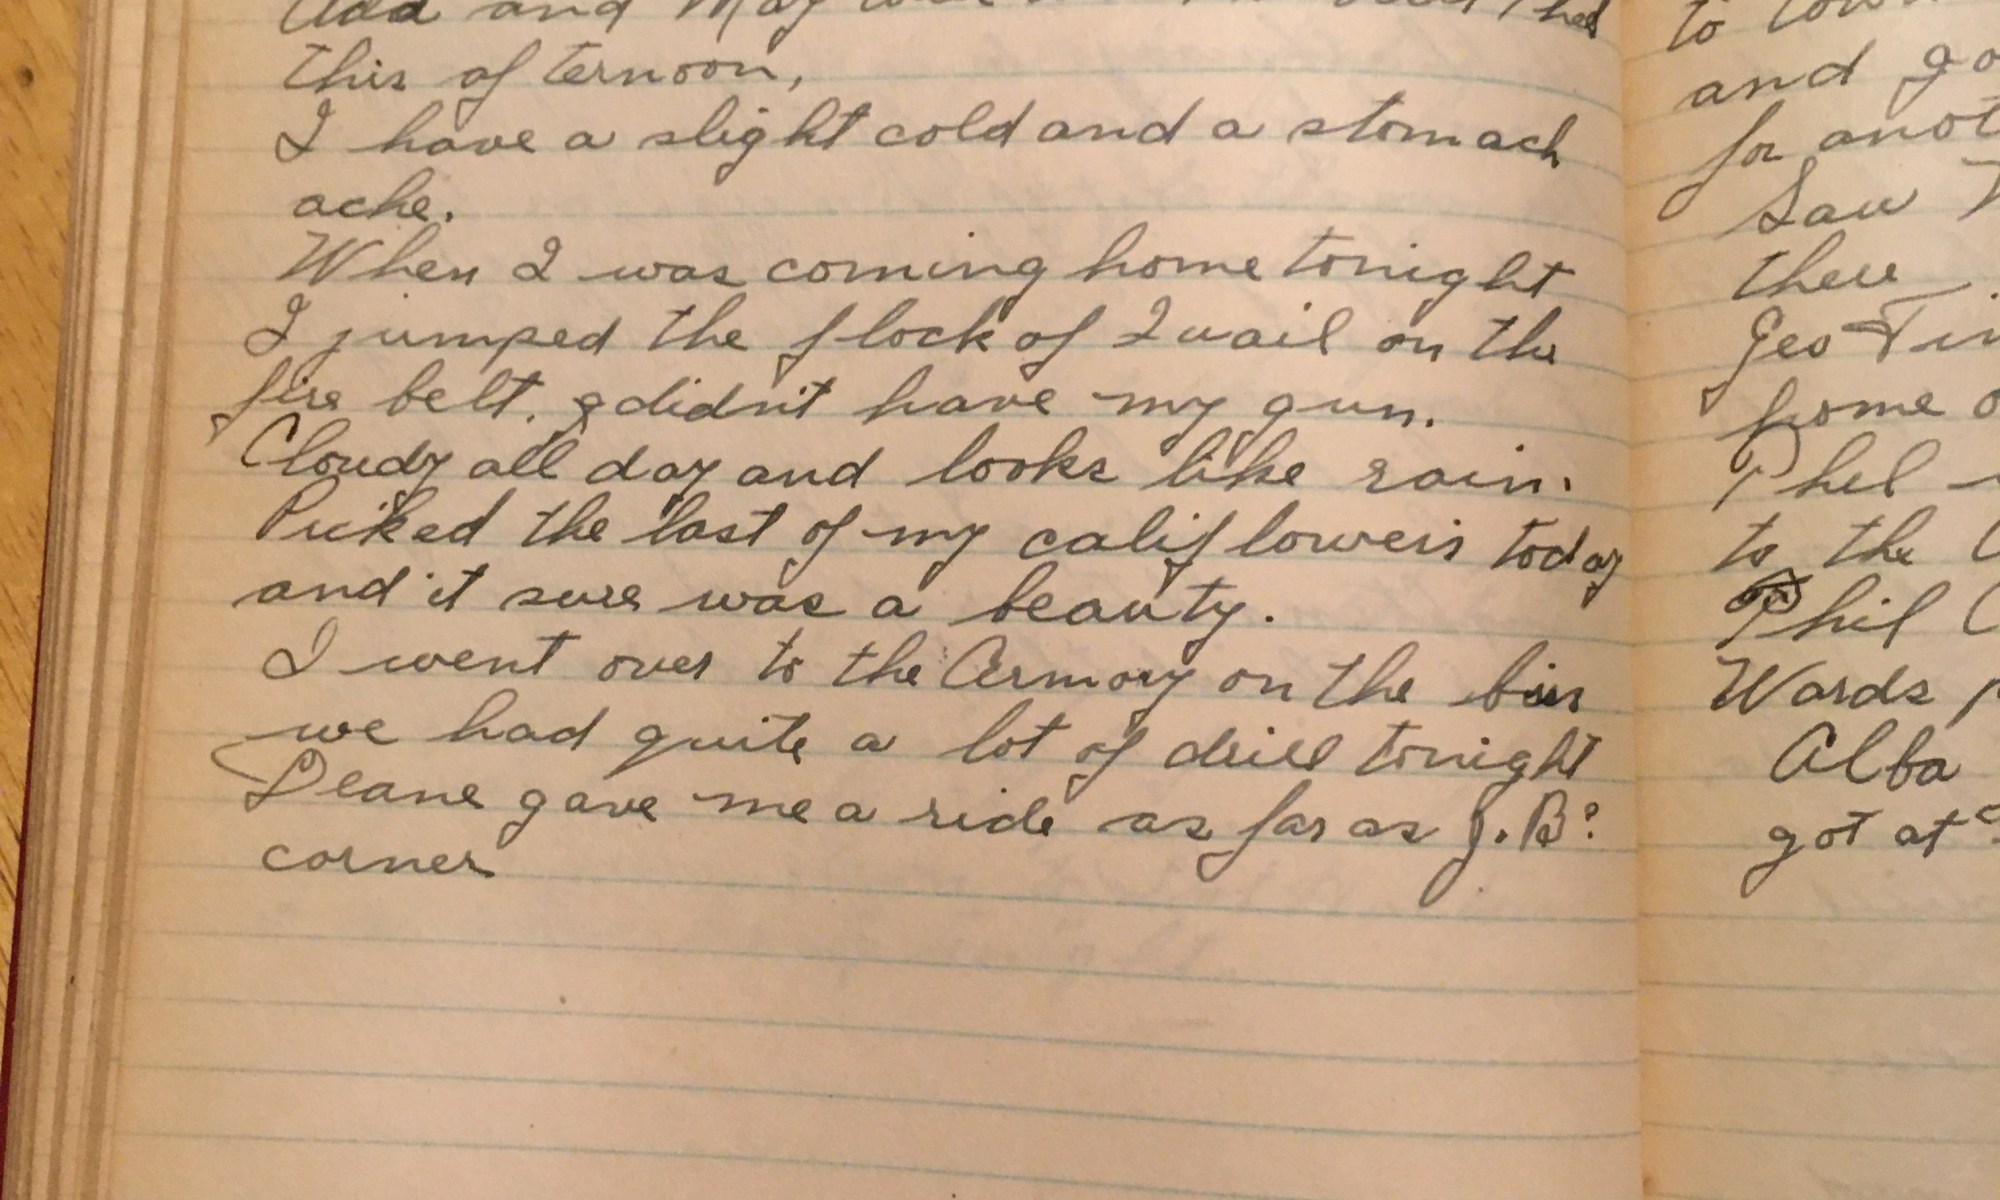 and May
this afternoon,
I have a slight cold and a stomach
ache.
When I was coming home tonight
I jumped the flock of Quail on the
fire belt. I didn't have my gun.
Cloudy all day and looks like rain.
Picked the last of my califlowers today
and it sure was a beauty.
I went over to the Armory on the bus
we had quite a lot of drill tonight
Deane gave me a ride as far as J.B's
corner
to
and
for
Saw
there
Geo
home
Phel
to the
Phil
Wards
Alba
got at